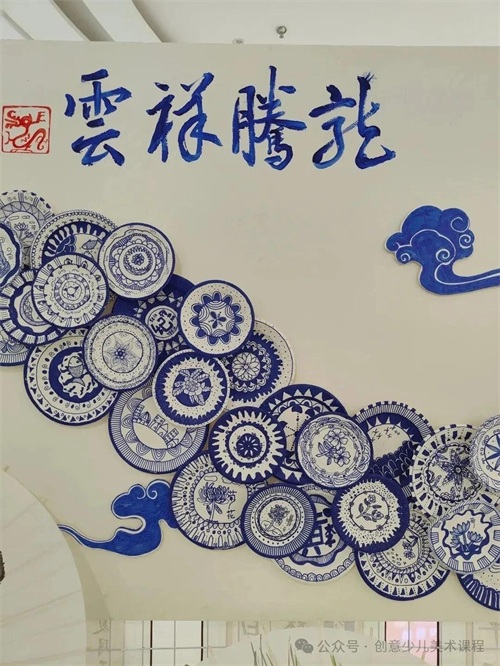 龍騰祥雲
公众号 · 创意少儿美术课程